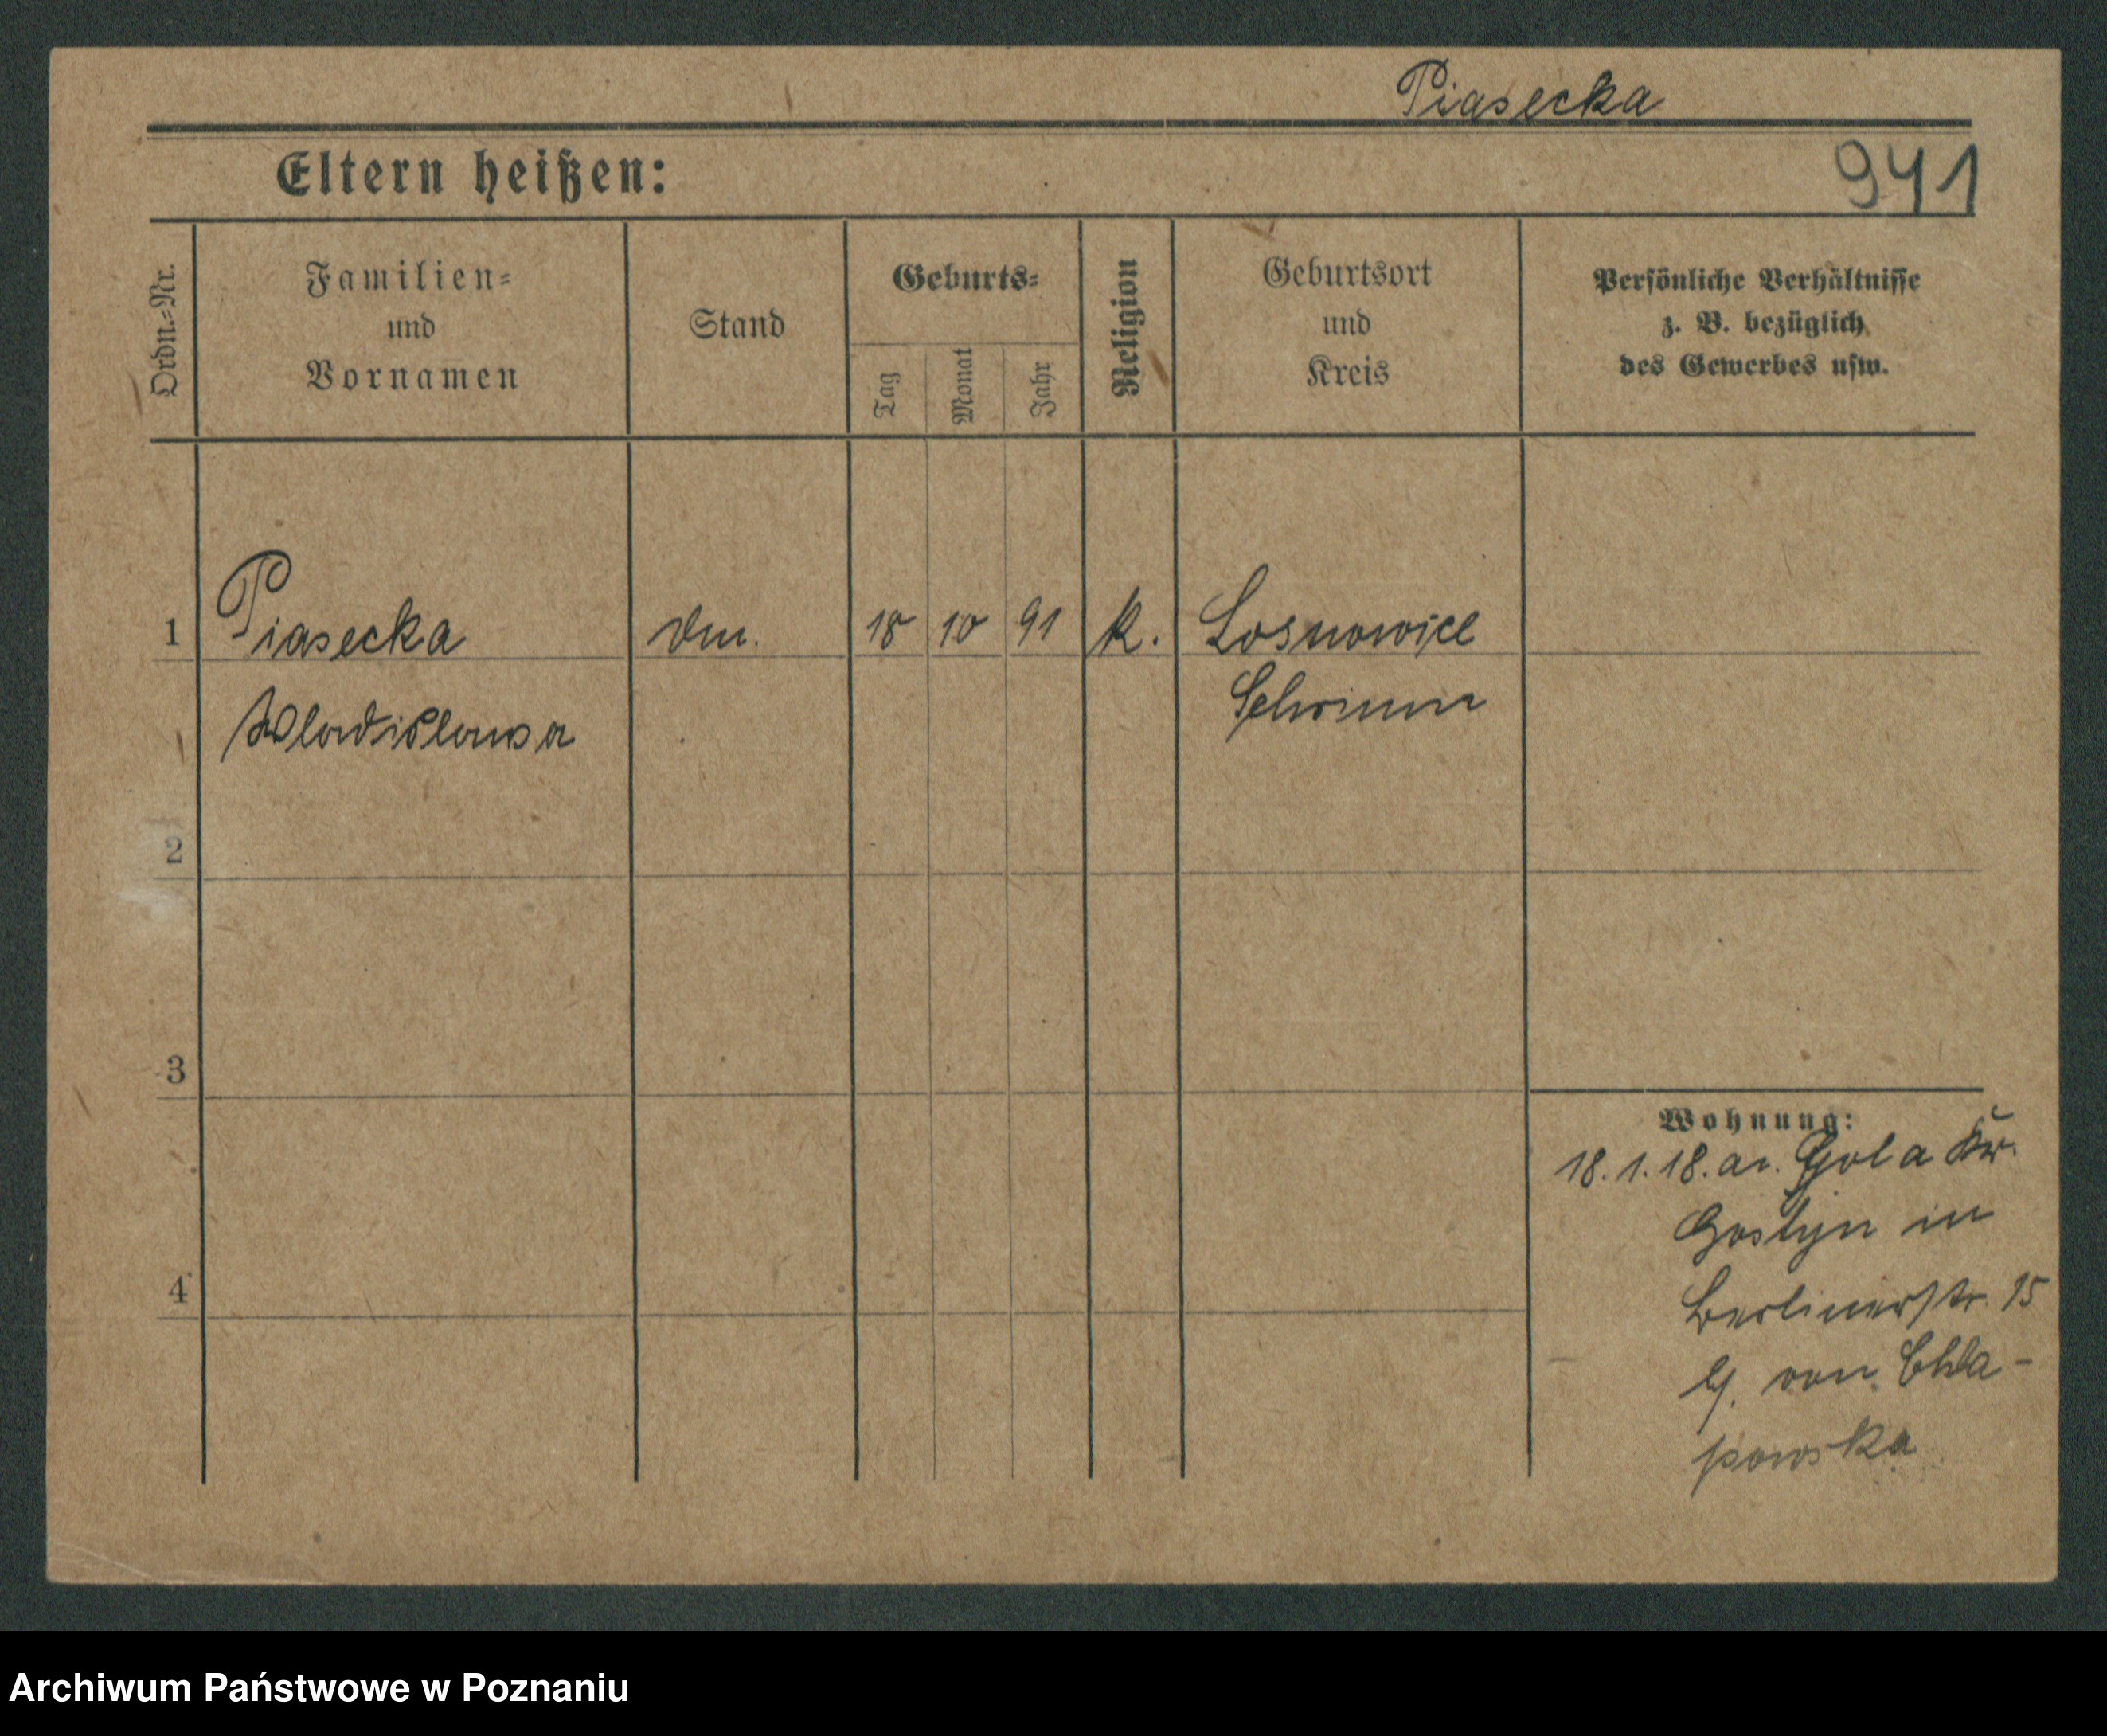 Piasecka
Eltern heißen:
941
Ordn.-Nr.
Familien-
und
Vornamen
Stand
Geburts-
Tag
Monat
Jahr
Religion
Geburtsort
und
Kreis
Persönliche Verhältnisse
z. B. bezüglich
des Gewerbes usw.
1 Piasecka 18 10 91 k. Losnowice
Wladislawa Schrimm
2
3
4
Wohnung:
18.1.18. Gola
Gostyn in
Berlinerstr. 15
von Chla-
powska
Archiwum Państwowe w Poznaniu